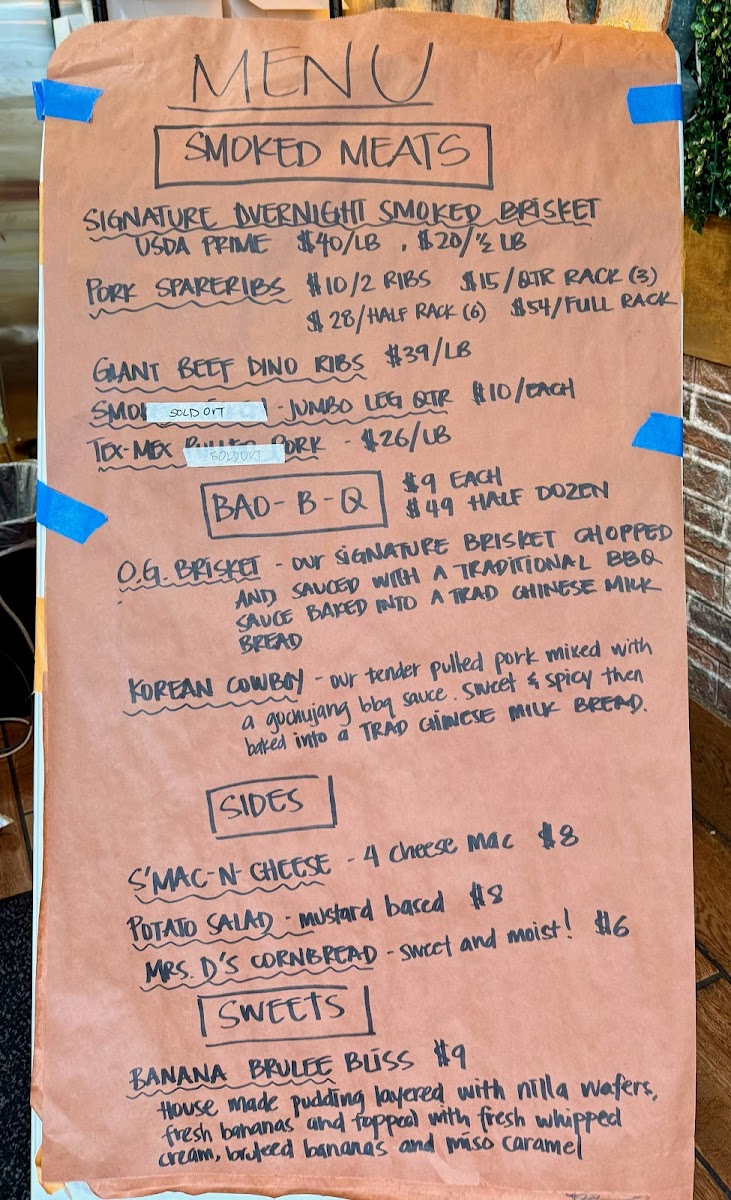 MENU
SMOKED MEATS
SIGNATURE OVERNIGHT SMOKED BRISKET
USDA PRIME $40/LB , $20/½ LB
PORK SPARERIBS $10/2 RIBS $15/QTR RACK (3)
$28/HALF RACK (6) $54/FULL RACK
GIANT BEEF DINO RIBS $39/LB
SOLD OUT - JUMBO LEG QTR $10/EACH
TEX-MEX PULLED PORK - $26/LB
SOLD OUT
BAO-B-Q $9 EACH
$49 HALF DOZEN
O.G. BRISKET - our SIGNATURE BRISKET CHOPPED
AND SAUCED WITH A TRADITIONAL BBQ
SAUCE BAKED INTO A TRAD CHINESE MILK
BREAD
KOREAN COWBOY - our tender pulled pork mixed with
a gochujang bbq sauce. sweet & spicy then
baked into a TRAD CHINESE MILK BREAD.
SIDES
S'MAC-N-CHEESE - 4 cheese mac $8
POTATO SALAD - mustard based $8
MRS. D'S CORNBREAD - sweet and moist! $6
SWEETS
BANANA BRULEE BLISS $9
House made pudding layered with nilla wafers,
fresh bananas and topped with fresh whipped
cream, bruleed bananas and miso caramel